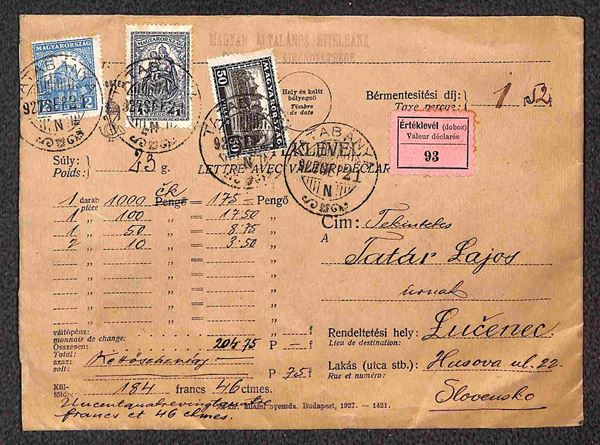 MAGYARORSZÁG
MAGYARORSZÁG
MAGYARORSZÁG
50
MAGYAR ÁLTALÁNOS HITELBANK
TATABÁNYA
927 SEP 21
N
Hely és kelti
bélyegző
Timbre
de date
Bérmentesitési díj: 1 P 52
Taxe perçue:
Értéklevél (doboz)
Valeur déclarée
93
Súly: 43 g.
Poids:
KLEVÉL
LETTRE AVEC VALEUR DÉCLAR
čk
1 darab 1000 Pengő = 175 = Pengő
pièce
1 " 100 " = 17.50 "
1 " 50 " = 8.75 "
2 " 10 " = 3.50 "
Cím: Tekintetes
A
Tatár Lajos
úrnak
váltópénz:
monnaie de change: f
Összesen: 204 75 P – f
Total:
azaz:
soit: P 75 f
Rendeltetési hely: Lučenec
Lieu de destination:
Lakás (utca stb.): Husova ul. 22
Rue et numéro:
Slovensko
Kül-
földre: 184 francs 46 ctmes.
francs et 46 ctmes.
M. kir. állami nyomda, Budapest, 1927. — 1421.